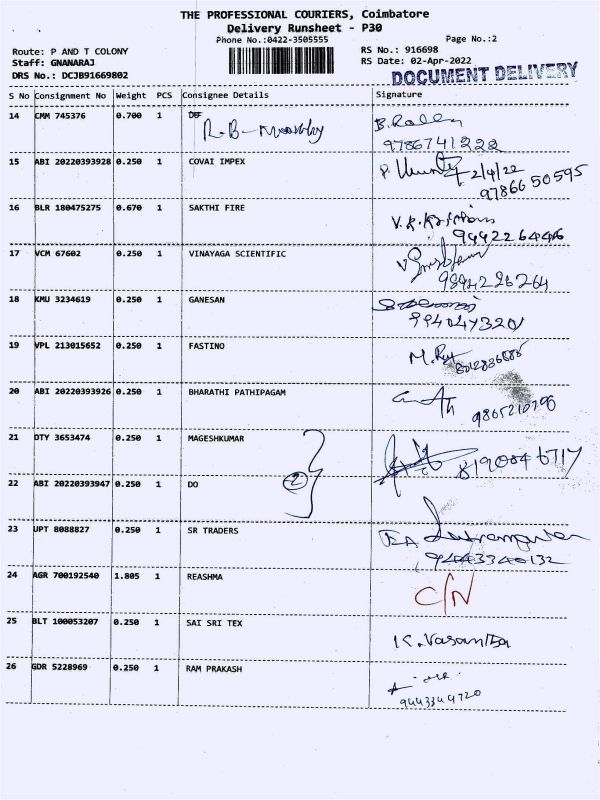 THE PROFESSIONAL COURIERS, Coimbatore
Delivery Runsheet - P30
Phone No.:0422-3505555
Page No.:2
Route: P AND T COLONY
RS No.: 916698
Staff: GNANARAJ
RS Date: 02-Apr-2022
DRS No.: DCJB91669802
DOCUMENT DELIVERY
S No Consignment No Weight PCS Consignee Details Signature
14 CMM 745376 0.700 1
R-B-
9786741222
15 ABI 20220393928 0.250 1 COVAI IMPEX
2/4/22
9786650595
16 BLR 180475275 0.670 1 SAKTHI FIRE
9442264446
17 VCM 67602 0.250 1 VINAYAGA SCIENTIFIC
18 KMU 3234619 0.250 1 GANESAN
9940473201
19 VPL 213015652 0.250 1 FASTINO
20 ABI 20220393926 0.250 1 BHARATHI PATHIPAGAM
21 DTY 3653474 0.250 1 MAGESHKUMAR
8190846717
2
22 ABI 20220393947 0.250 1 DO
23 UPT 8088827 0.250 1 SR TRADERS
24 AGR 700192540 1.805 1 REASHMA
C/N
25 BLT 100053207 0.250 1 SAI SRI TEX
K. Vasantha
26 GDR 5228969 0.250 1 RAM PRAKASH
9443344720